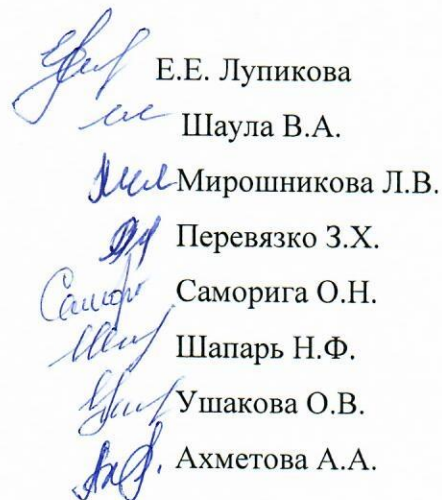 Е.Е. Лупикова
Шаула В.А.
Мирошникова Л.В.
Перевязко З.Х.
Саморига О.Н.
Шапарь Н.Ф.
Ушакова О.В.
Ахметова А.А.